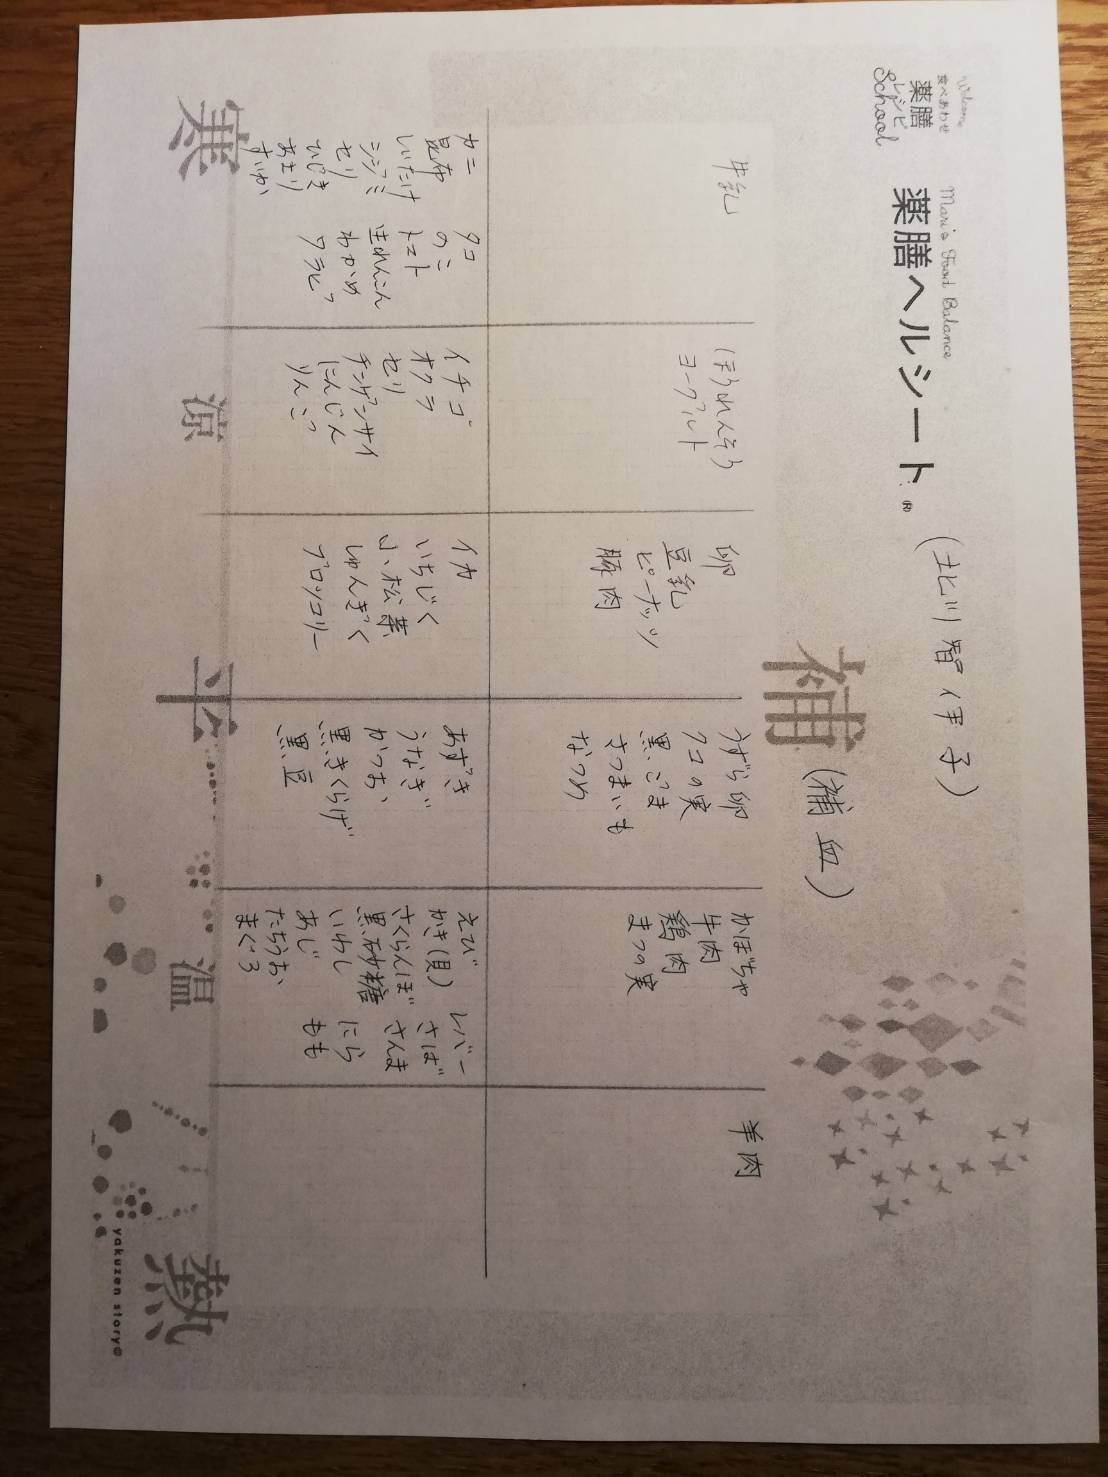 Welcome
食べあわせ
薬膳
レシピ
School
Mari's Food Balance
薬膳ヘルシート®
(北川智伊子)
補
(補血)
牛乳
ほうれんそう
ヨーグルト
卵
豆乳
ピーナッツ
豚肉
うずら卵
クコの実
黒ごま
さつまいも
なつめ
かぼちゃ
牛肉
鶏肉
まつの実
羊肉
カニ タコ
昆布 のり
しいたけ トマト
シジミ 生れんこん
セリ わかめ
ひじき ワラビ
あさり
すいか
イチゴ
オクラ
セリ
チンゲンサイ
にんじん
りんご
イカ
いちじく
小松菜
しゅんぎく
ブロッコリー
あずき
うなぎ
かつお
黒きくらげ
黒豆
えび レバー
かき(貝) さば
さくらんぼ さんま
黒砂糖 にら
いわし もも
あじ
たちうお
まぐろ
寒
涼
平
温
熱
yakuzen story©